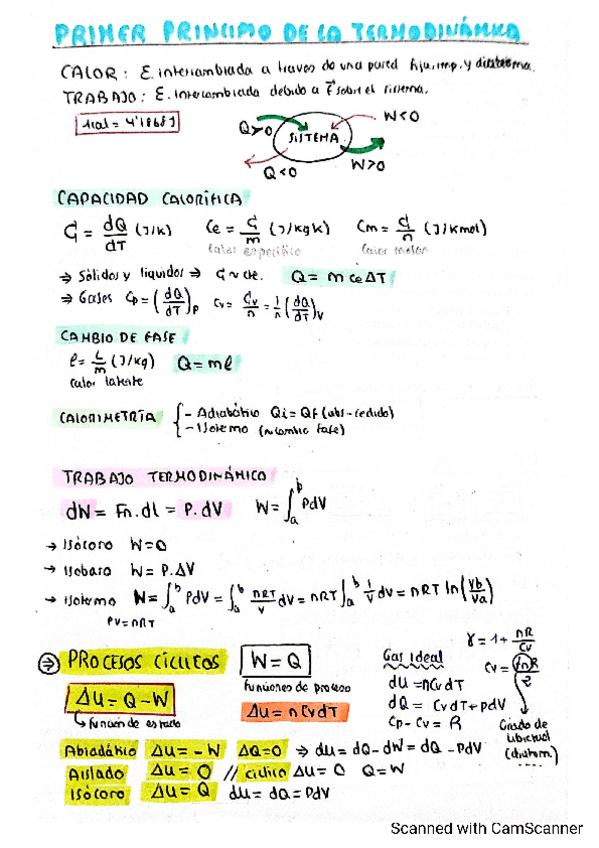 PRIMER PRINCIPIO DE LA TERMODINÁMICA
CALOR: E. intercambiada a traves de una pared fija, imp. y diaterma.
TRABAJO: E. intercambiada debido a F sobre el sistema.
1cal = 4'1868J
Q>0 SISTEMA W<0
Q<0 W>0
CAPACIDAD CALORÍFICA
C = dQ/dT (J/K) Ce = C/m (J/kgK) Cm = C/n (J/Kmol)
Calor específico Calor molar
⇒ Sólidos y líquidos ⇒ C ≈ cte. Q = m ce ΔT
⇒ Gases Cp = (dQ/dT)p Cv = Cv/n = 1/n (dQ/dT)v
CAMBIO DE FASE
l = L/m (J/kg) Q = ml
calor latente
CALORIMETRÍA { - Adiabático Qi = Qf (abs-cedido)
- Isotermo (cambio fase)
TRABAJO TERMODINÁMICO
dW = Fn.dl = P.dV W = ∫ab PdV
→ Isócoro W=0
→ Isobaro W = P.ΔV
→ Isotermo W = ∫ab PdV = ∫ab nRT/V dV = nRT ∫ab 1/V dV = nRT ln(Vb/Va)
PV = nRT
⇒ PROCESOS CÍCLICOS W = Q
funciones de proceso
ΔU = Q - W
función de estado
ΔU = n Cv dT
Gas Ideal
γ = 1 + nR/Cv
dU = nCvdT
Cv = fnR/2
dQ = CvdT + pdV
Cp - Cv = R
Grado de libertad (diatom.)
Abiadático ΔU = -W ΔQ=0 ⇒ dU = dQ - dW = dQ - PdV
Aislado ΔU = 0 // cíclico ΔU = 0 Q=W
Isócoro ΔU = Q dU = dQ = PdV
Scanned with CamScanner